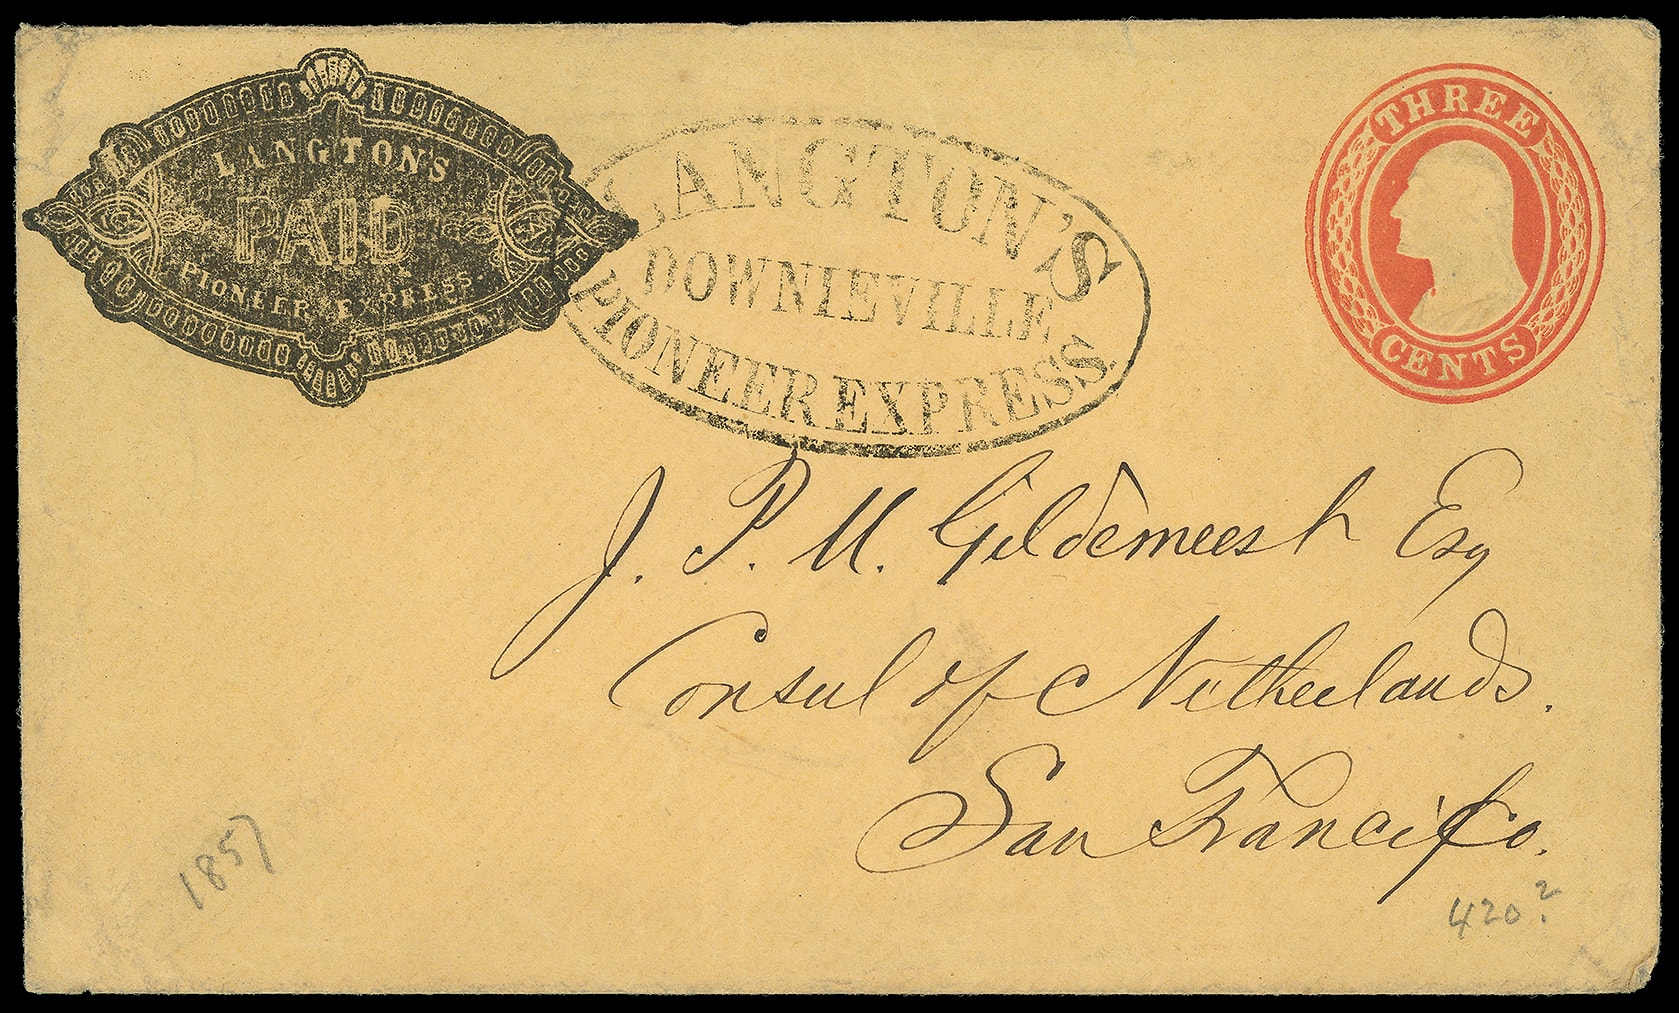 LANGTON'S
PAID
PIONEER EXPRESS.
LANGTON'S
DOWNIEVILLE
PIONEER EXPRESS.
THREE
CENTS
J. P. M. Gildemeest Esq
Consul of Netherlands.
San Francisco.
1857
420?